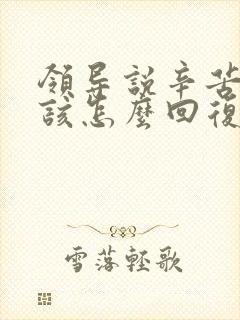 領导說辛苦
該怎麼回復
雪落輕歌